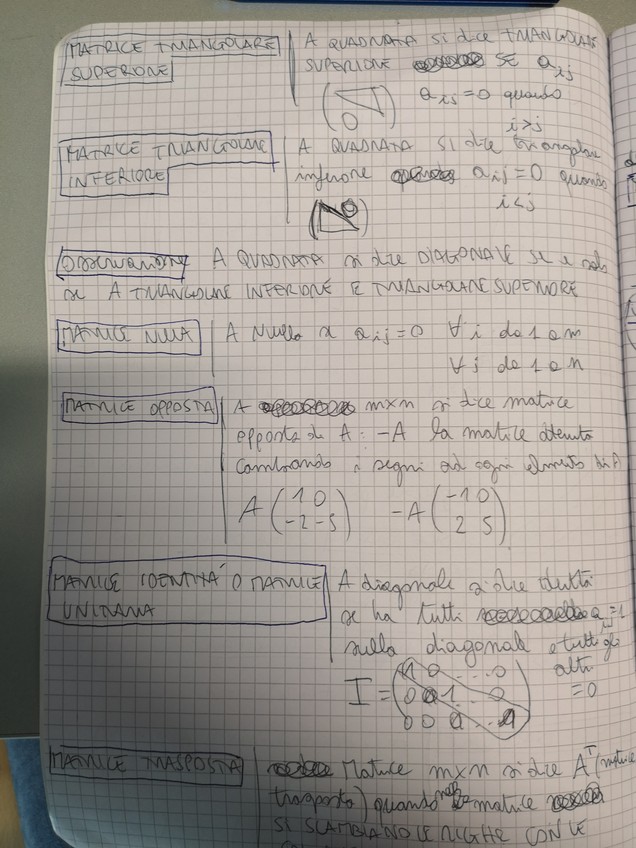 MATRICE TRIANGOLARE SUPERIORE
A QUADRATA SI DICE TRIANGOLARE
SUPERIORE SE a_ij
a_ij = 0 quando
i > j
0
MATRICE TRIANGOLARE INFERIORE
A QUADRATA SI DICE triangolare
inferiore a_ij = 0 quando
i < j
0
Osservazione A QUADRATA si dice DIAGONALE SE e solo
se A TRIANGOLARE INFERIORE E TRIANGOLARE SUPERIORE
MATRICE NULLA
A Nulla se a_ij = 0 ∀ i da 1 a m
∀ j da 1 a n
MATRICE OPPOSTA
A m×n si dice matrice
opposta di A: -A la matrice ottenuta
cambiando i segni ad ogni elemento di A
A ( 1 0 -A ( -1 0
-2 -5 ) 2 5 )
MATRICE IDENTITÀ O MATRICE
UNITARIA
A diagonale si dice identità
se ha tutti a_ij = 1
sulla diagonale e tutti gli
altri
= 0
I = ( 1 0 ... 0
0 0 1 ... 0
0 0
MATRICE TRASPOSTA
Matrice m×n si dice A^T (matrice
trasposta) quando nella matrice
SI SCAMBIANO LE RIGHE CON LE